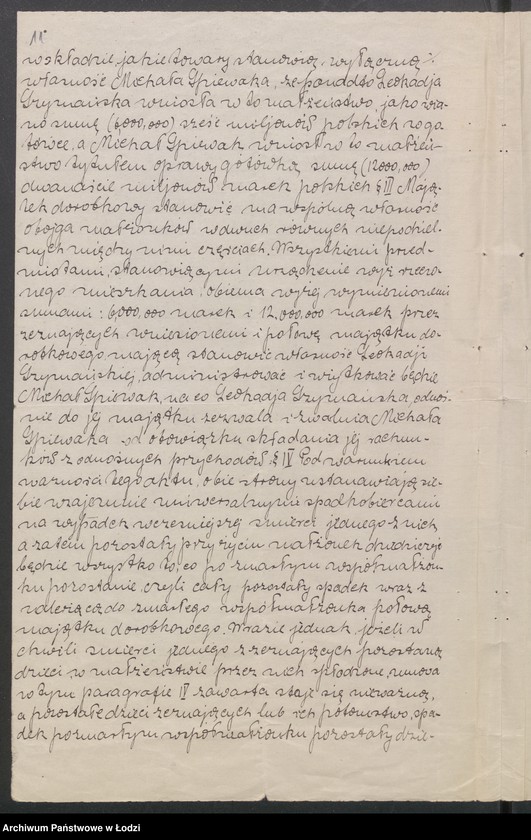 11
w składzie, jakie towary stanowią wyłączną
własność Michała Śpiewaka, że ponadto Leokadja
Szymańska wniosła w to małżeństwo, jako wia-
no sumę (6,000,000) sześć miljonów polskich
a Michał Śpiewak wniósł w to małżeń-
stwo tytułem oprawy gotówką sumę (12000,000)
dwanaście miljonów marek polskich § III Mają-
tek dorobkowy stanowić ma wspólną własność
obojga małżonków w dwuch równych niepodziel-
nych między nimi częściach. Wszystkiemi przed-
miotami, stanowiącymi urządzenie wyż rzeczo-
nego mieszkania, obiema wyżej wymienionemi
sumami: 6,000,000 marek i 12.000,000 marek przez
zeznających wniesionemi i połową majątku do-
robkowego mającą stanowić własność Leokadji
Szymańskiej, administrować i użytkować będzie
Michał Śpiewak, na co Leokadja Szymańska odnoś-
nie do jej majątku zezwala i zwalnia Michała
Śpiewaka od obowiązku składania jej rachun-
ków z odnośnych przychodów. § IV Pod warunkiem
ważności tego aktu, obie strony ustanawiają sie-
bie wzajemnie uniwersalnymi spadkobiercami
na wypadek wcześniejszej śmierci jednego z nich,
a zatem pozostały przy życiu małżonek dziedziczyć
będzie wszystko to, co po zmarłym współmałżon-
ku pozostanie, czyli cały pozostały spadek wraz z
należącą do zmarłego współmałżonka połową
majątku dorobkowego. W razie jednak, jeżeli w
chwili śmierci jednego z zeznających pozostaną
dzieci w małżeństwie przez nich spłodzone, umowa
w tym paragrafie IV zawarta staje się nieważną,
a pozostałe dzieci zeznających lub ich potomstwo, spa-
dek po zmarłym współmałżonku pozostały dzie-
Archiwum Państwowe w Łodzi